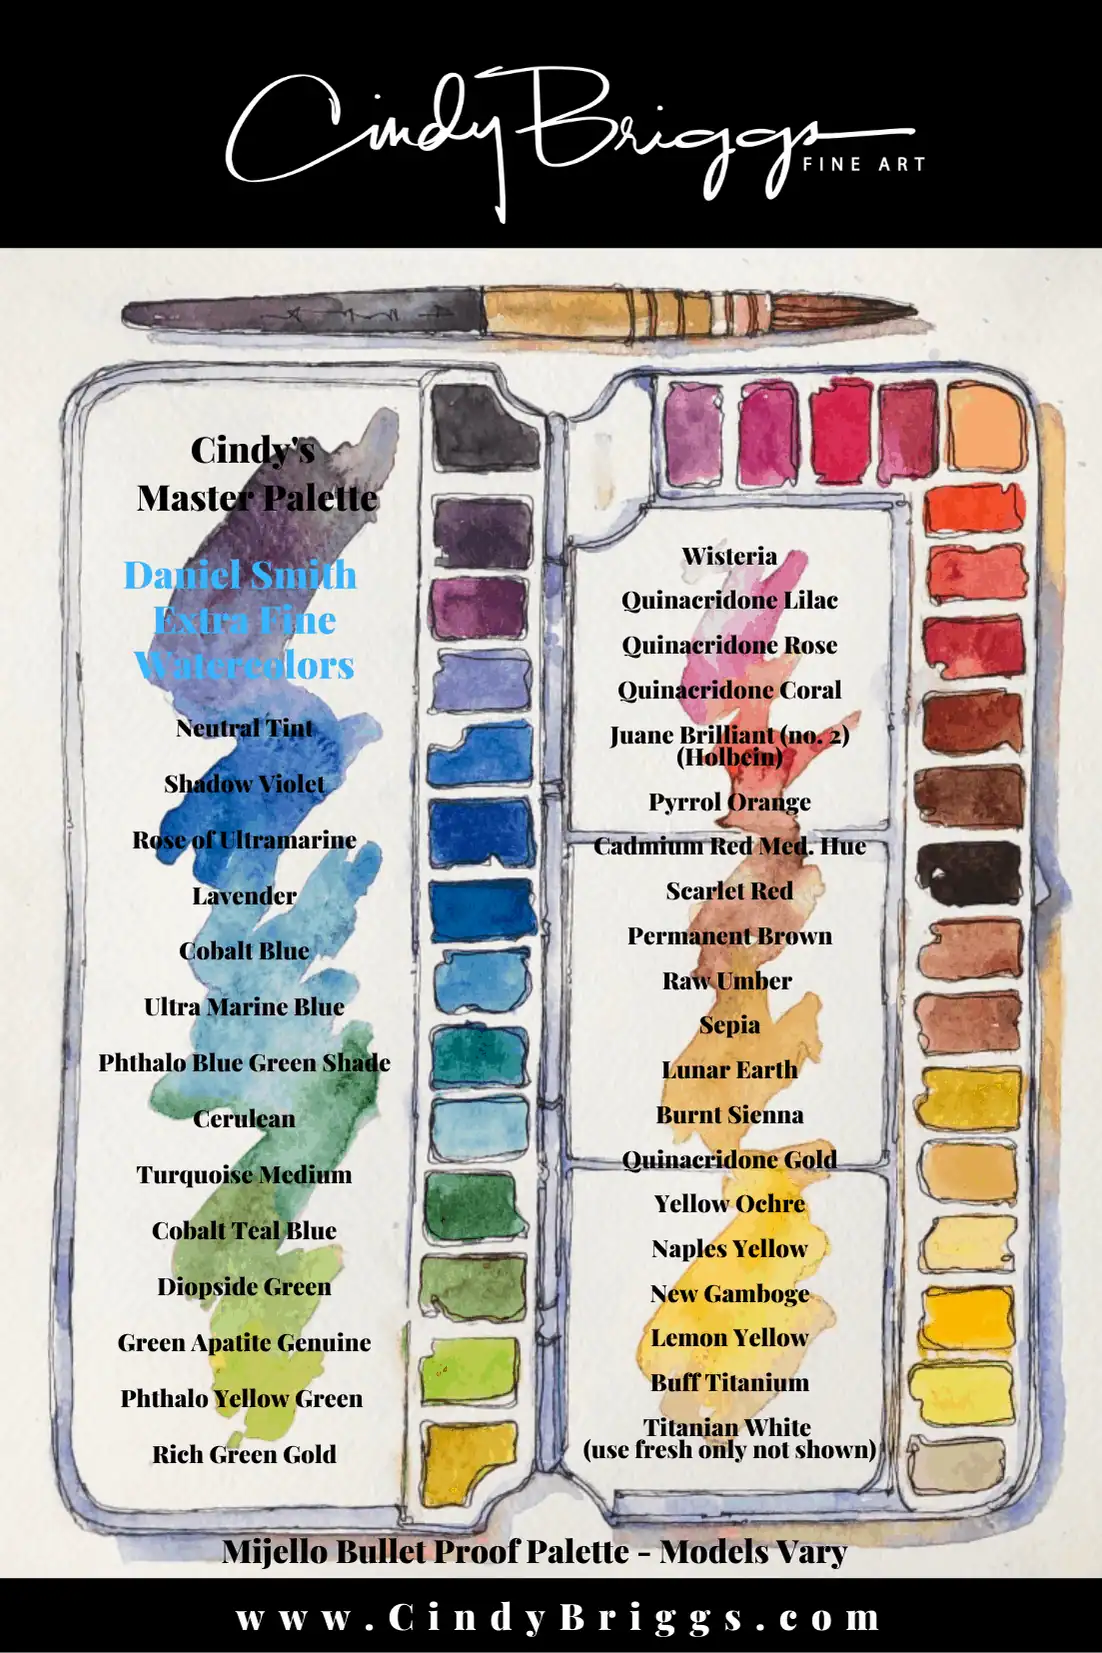 Cindy Briggs
FINE ART
Cindy's
Master Palette
Daniel Smith
Extra Fine
Watercolors
Neutral Tint
Shadow Violet
Rose of Ultramarine
Lavender
Cobalt Blue
Ultra Marine Blue
Phthalo Blue Green Shade
Cerulean
Turquoise Medium
Cobalt Teal Blue
Diopside Green
Green Apatite Genuine
Phthalo Yellow Green
Rich Green Gold
Wisteria
Quinacridone Lilac
Quinacridone Rose
Quinacridone Coral
Juane Brilliant (no. 2)
(Holbein)
Pyrrol Orange
Cadmium Red Med. Hue
Scarlet Red
Permanent Brown
Raw Umber
Sepia
Lunar Earth
Burnt Sienna
Quinacridone Gold
Yellow Ochre
Naples Yellow
New Gamboge
Lemon Yellow
Buff Titanium
Titanian White
(use fresh only not shown)
Mijello Bullet Proof Palette - Models Vary
www.CindyBriggs.com